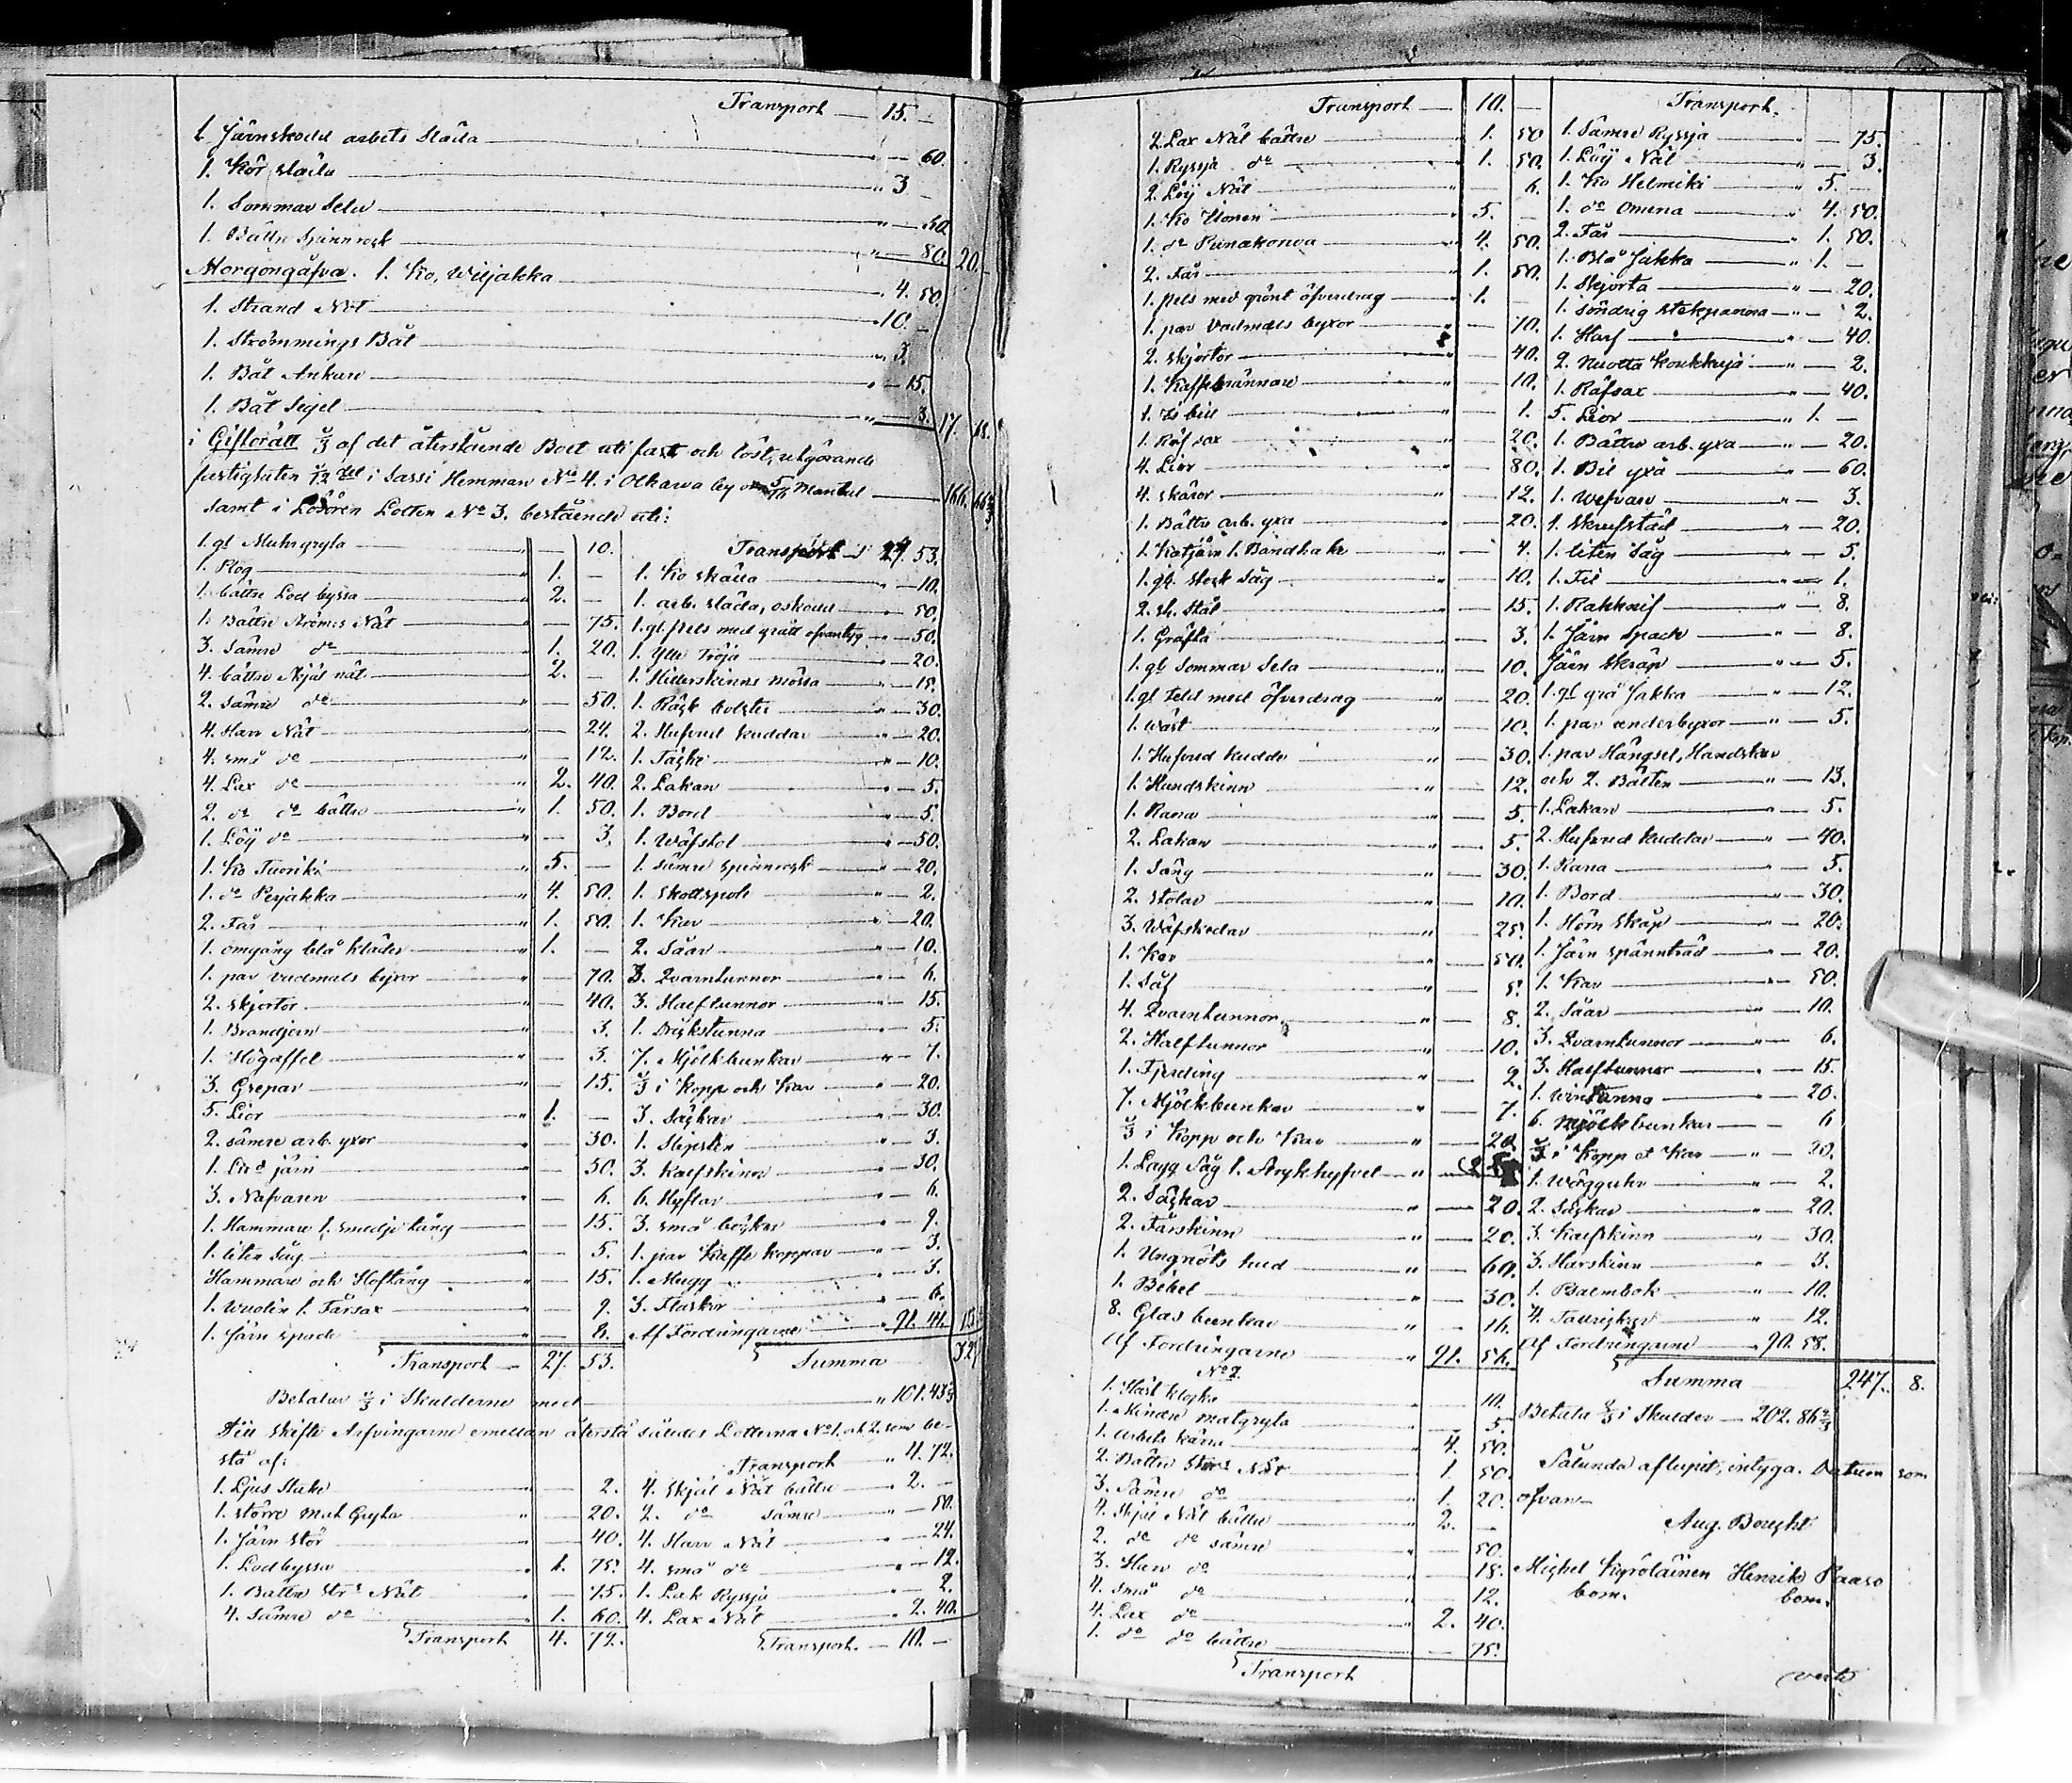 Transport — 15. —
1. Järnskodd arbets släda — " — 60.
1. Kör släda — " 3 —
1. Sommar Sela — " — 50.
1. Bättre Spinnrock — " — 80. 20. —
Morgongåfva. 1. Ko, Wiljakka — " 4. 50.
1. Strand Nöt — " 10. —
1. Strömmings Båt — " 3.
1. Båt Ankare — " — 15.
1. Båt Segel — " — 3. 17. 18.
i Giftorätt 1/3 af det återstående Boet uti fast och löst, utgörande
fastigheten i Sassi Hemman No 4. i Olhava by Mantal — 166. 66 2/3
samt i Lösören Lotten No 3. bestående uti:
1. gl. Muhrgryta — " — 10.
1. Plog — " 1. —
1. bättre Lod byssa — " 2. —
1. Bättre Ströms Nät — " — 75.
3. Sämre do — " 1. 20.
4. bättre Skjäl nät — " 2. —
2. Sämre do — " — 50.
4. Harr Nät — " — 24.
4. små do — " — 12.
4. Lax do — " 2. 40.
2. do do bättre — " 1. 50.
1. Löij do — " — 3.
1. Ko Tuoriki — " 5. —
1. do Perjakka — " 4. 50.
2. Får — " 1. 50.
1. omgång blå kläder — " 1. —
1. par vadmals byxor — " — 70.
2. Skjortor — " — 40.
1. Brandjern — " — 3.
1. Högaffel — " — 3.
3. Grepar — " — 15.
5. Lior — " 1. —
2. sämre arb. yxor — " — 30.
1. järn — " — 50.
3. Nafvaren — " — 6.
1. Hammare 1. smedje tång — " — 15.
1. liten Såg — " — 5.
Hammare och Hoftång — " — 15.
1. Wuolin 1. Fårsax — " — 9.
1. Järn spade — " — 8.
Transport — 27. 53.
Transport " 27. 53.
1. Ko skälla — " — 10.
1. arb. släda, oskodd — " — 50.
1. gl. Pels med grått ofvantyg — " — 50.
1. Ylle Tröja — " — 20.
1. Hillerskinns mössa — " — 15.
1. Råsk bolster — " — 30.
2. Hufvud kuddar — " — 20.
1. Täcke — " — 10.
2. Lakan — " — 5.
1. Bord — " — 5.
1. Wäfstol — " — 50.
1. sämre spinnrock — " — 20.
1. Skottspole — " — 2.
1. Kar — " — 20.
2. Såar — " — 10.
3. Qvarntunnor — " — 6.
3. Halftunnor — " — 15.
1. Drickstunna — " — 5.
7. Mjölkbunkar — " — 7.
1/3 i Kopp och Kar — " — 20.
3. Säckar — " — 30.
1. Slipsten — " — 3.
3. Kalfskinn — " — 30.
6. Hyftar — " — 6.
3. små böckar — " — 9.
1. par Kaffe koppar — " — 3.
1. Mugg — " — 3.
3. Flaskor — " — 6.
Af Fordringarne — " 91. 44.
Summa
Betalar 1/3 i Skulderne med — " 101. 43 1/3
Till skifte Arfvingarne emellan återstå således Lotterna No 1. och 2. som be-
stå af:
1. Ljus Stake — " — 2.
1. större Mat Gryta — " — 20.
1. Järn stör — " — 40.
1. Lodbyssa — " 1. 75.
1. Bättre Strs Nät — " — 75.
4. Sämre do — " 1. 60.
Transport 4. 72.
Transport " 4. 72.
4. Skjäl Nät bättre — " 2. —
2. do sämre — " — 50.
4. Harr Nät — " — 24.
4. små do — " — 12.
1. Lak Ryssja — " — 2.
4. Lax Nät — " 2. 40.
Transport. — 10. —
Transport — 10. —
2. Lax Nät bättre — " 1. 50
1. Ryssja do — " 1. 50.
2. Löij Nät — " — 6.
1. Ko Ilonen — " 5. —
1. do Punakorva — " 4. 50.
2. Får — " 1. 50.
1. Pels med grönt öfverdrag — " 1. —
1. par Vadmals byxor — " — 70.
2. Skjortor — " — 40.
1. Kaffebrännare — " — 10.
1. Is bill — " — 1.
1. Räf sax — " — 20.
4. Lior — " — 80.
4. skäror — " — 12.
1. Bättre arb. yxa — " — 20.
1. Katjärn 1. Bandhake — " — 4.
1. gl. stock Såg — " — 10.
2. st. Stål — " — 15.
1. Gräfta — " — 3.
1. gl. Sommar Sela — " — 10.
1. gl. täld med öfverdrag — " — 20.
1. Wäst — " — 10.
1. Hufvud kudde — " — 30.
1. Hundskinn — " — 12.
1. Rana — " — 5.
2. Lakan — " — 5.
1. Säng — " — 30.
2. Stolar — " — 10.
3. Wäfskedar — " — 25.
1. Kar — " — 50.
1. Såf — " — 5.
4. Qvarntunnor — " — 8.
2. Halftunnor — " — 10.
1. Fjerding — " — 2.
7. Mjölkbunkar — " — 7.
1/3 i Kopp och Kar — " — 20
1. Lagg Såg 1. Strykhyfvel — "
2. Säckar — " — 20.
2. Fårskinn — " — 20.
1. Ungnöts hud — " — 60.
1. Bibel — " — 30.
8. Glas bunkar — " — 16.
Af Fordringarne — " 91. 56.
No 2.
1. Häst klocka — 10.
1. Mindre matgryta — 5.
1. Arbets kärra — " 4. 50.
2. Bättre Strs Nät — " 1. 50.
3. Sämre do — " 1. 20.
4. Skjäl Nät bättre — " 2. —
2. do do sämre — " — 50.
3. Harr do — " — 18.
4. små do — " — 12.
4. Lax do — " 2. 40.
1. do do bättre — " — 75.
Transport
Transport.
1. Sämre Ryssja — " — 75.
1. Löij Nät — " — 3.
1. Ko Helmiki — " 5. —
1. do Omena — " 4. 50.
2. Får — " 1. 50.
1. Blå Jakka — " 1. —
1. Skjorta — " — 20.
1. söndrig stekpanna — " — 2.
1. Harf — " — 40.
2. Nuotta Koukkuja — " — 2.
1. Räfsax — " — 40.
5. Lior — " 1. —
1. Bättre arb. yxa — " — 20.
1. Bil yxa — " — 60.
1. Wefvare — " — 3.
1. Skrufstäd — " — 20.
1. liten Såg — " — 5.
1. Fil — " — 1.
1. — " — 8.
1. Järn Spade — " — 8.
Järn Skräp — " — 5.
1. gl. grå Jakka — " — 12.
1. par underbyxor — " — 5.
1. par Hängsel, Handskar
och 2. Bälten — " — 13.
1. Lakan — " — 5.
2. Hufvud kuddar — " — 40.
1. Rana — " — 5.
1. Bord — " — 30.
1. Hörn Skåp — " — 20.
1. Järn spänntråd — " — 20.
1. Kar — " — 50.
2. Såar — " — 10.
3. Qvarntunnor — " — 6.
3. Halftunnor — " — 15.
1. Wintunna — " — 20.
6. Mjölkbunkar — — 6
1/3 i Kopp o Kar — " — 20.
1. Wägguhr — " — 2.
2. Säckar — " — 20.
3. Kalfskinn — " — 30.
3. Harskinn — " — 3.
1. Psalmbok — " — 10.
4. Tallrickar — " — 12.
Af Fordringarne — 90. 58.
Summa 247. 8.
Betala 2/3 i Skulder — 202. 86 2/3
Sålunda aflupit, intyga. Datum som
ofvan —
Aug. Borght
Michel Kyröläinen Henrik Paaso
bom. bom.
vertè